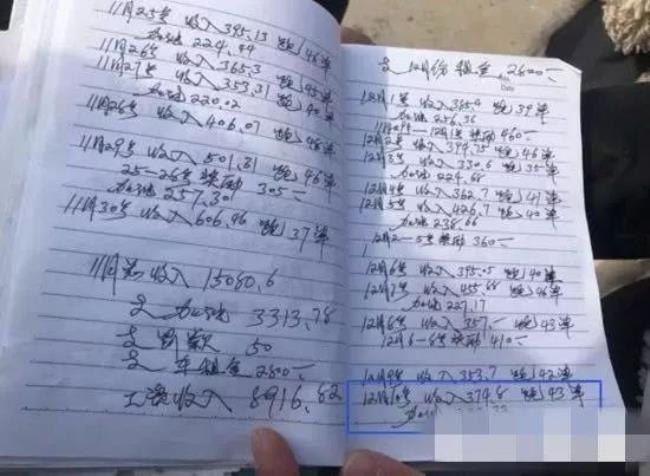 11月25号 收入395.13 跑46单
加油 224.54
11月26号 收入365.3 跑45单
11月27号 收入353.31 跑40单
加油 220.02
11月28号 收入406.07 跑48单
11月29号 收入501.31 跑46单
25-28号 奖励 305-
加油 257.301
11月30号 收入606.96 跑37单
11月总收入 15080.6
支 加油 3313.78
支 罚款 50
支 车租金 2800-
工资收入 8916.82
支 12月份租金 2600-
Date
12月1号 收入365.4 跑39单
加油256.36
奖励 460-
12月2号 收入394.75 跑46单
12月3号 收入330.6 跑35单
加油 224.68
12月4号 收入362.7 跑41单
12月5号 收入426.7 跑40单
加油 238.66
12月2-5号 奖励 360-
12月6号 收入395.05 跑40单
12月7号 收入455.68 跑46单
加油 227.17
12月8号 收入357.- 跑43单
12月6-8号 奖励 410-
12月9号 收入353.7 跑42单
12月10号 收入374.8 跑43单
加油